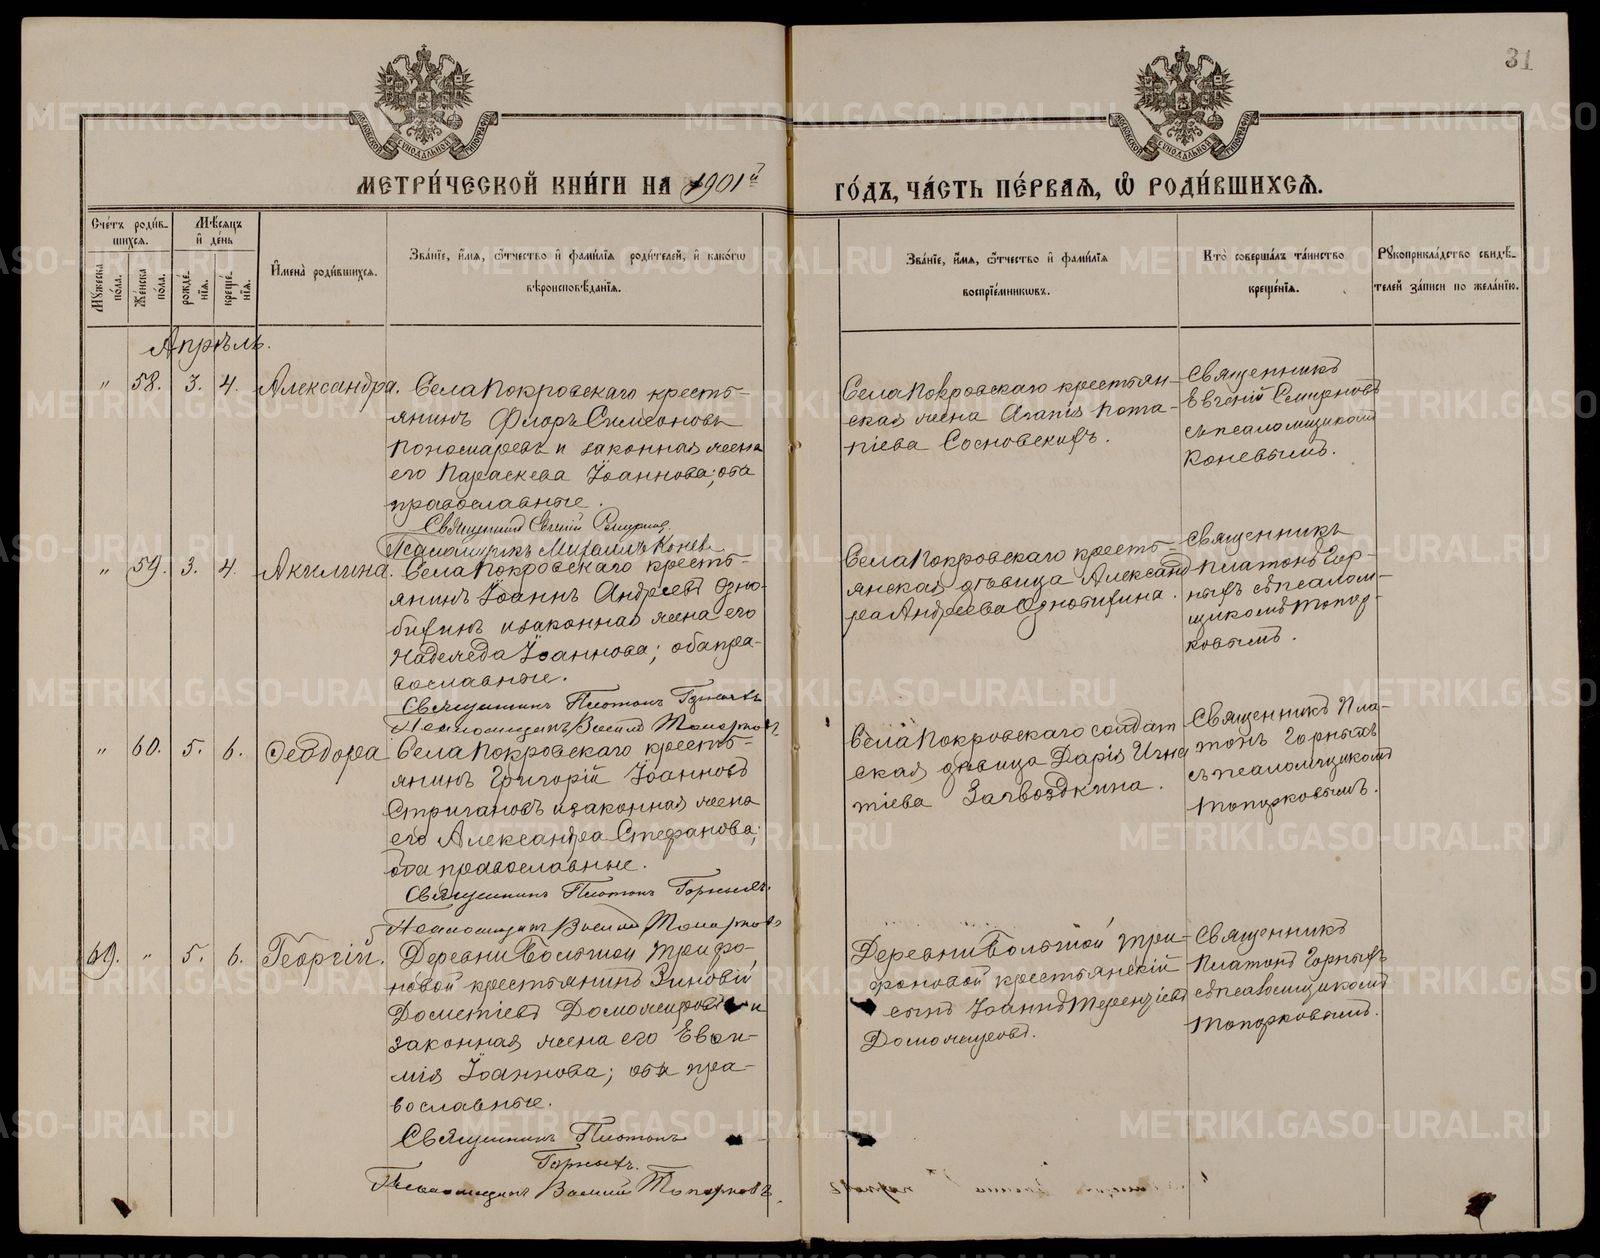 31
МЕТРИ́ЧЕСКОЙ КНИ́ГИ НА 1901й ГО́ДЪ, ЧА́СТЬ ПЕ́РВАЯ, Ѡ҆ РОДИ́ВШИХСЯ.
Сче́тъ роди́в-
шихся.
Му́жеска по́ла.
Же́нска по́ла.
Мѣ́сяцъ и҆ де́нь
рожде́нїя.
креще́нїя.
И҆мена̀ роди́вшихся.
Зва́нїе, и҆́мя, ѻ҆́тчество и҆ фами́лїя роди́телей, и҆ како́гѡ
вѣроисповѣ́данїя.
Зва́нїе, и҆́мя, ѻ҆́тчество и҆ фами́лїя
воспрїе́мникѡвъ.
Кто̀ соверша́лъ та́инство
креще́нїя.
Рꙋкоприкла́дство свидѣ́-
телей за́писи по жела́нїю.
Апрѣль.
" 58. 3. 4. Александра.
Села Покровскаго кресть-
янинъ Флоръ Симеоновъ
Пономаревъ и законная жена
его Параскева Іоаннова; оба
православные.
Священникъ Евгеній Смирновъ
Псаломщикъ Михаилъ Коневъ
Села Покровскаго крестьян-
ская жена Агапія Пота-
піева Сосновскихъ.
Священникъ
Евгеній Смирновъ
съ псаломщикомъ
Коневымъ.
" 59. 3. 4. Акилина.
Села Покровскаго кресть-
янинъ Іоаннъ Андреевъ Одно-
бихинъ и законная жена его
Надежда Іоаннова; оба пра-
вославные.
Священникъ Платонъ Горныхъ
Псаломщикъ Василій Топорковъ
Села Покровскаго кресть-
янская дѣвица Александ
ра Андреева
Священникъ
Платонъ Гор-
ныхъ съ псалом-
щикомъ Топор-
ковымъ.
" 60. 5. 6. Ѳеодора
Села Покровскаго кресть-
янинъ Григорій Іоанновъ
Стригановъ и законная жена
его Александра Стефанова;
оба православные.
Священникъ Платонъ Горныхъ.
Псаломщикъ Василій Топорковъ
Села Покровскаго солдат
ская дѣвица Дарія Игна
тіева Загвоздкина.
Священникъ Пла-
тонъ Горныхъ
съ псаломщикомъ
Топорковымъ.
69. " 5. 6. Георгій.
Деревни Большой Трифо-
новой крестьянинъ Зиновій
Дометіевъ Доможировъ и
законная жена его Евѳи-
мія Іоаннова; оба пра-
вославные.
Священникъ Платонъ
Горныхъ.
Псаломщикъ Василій Топорковъ.
Деревни Большой Три-
фоновой крестьянскій
сынъ Іоаннъ Терентіевъ
Доможировъ.
Священникъ
Платонъ Горныхъ
съ псаломщикомъ
Топорковымъ.
METRIKI.GASO-URAL.RU